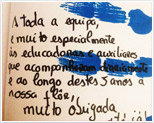 A toda a equipa,
e muito especialmente
às educadoras e auxiliares
que acompanharam diretamente
e ao longo destes 3 anos a
nossa Flôr!
muito obrigada